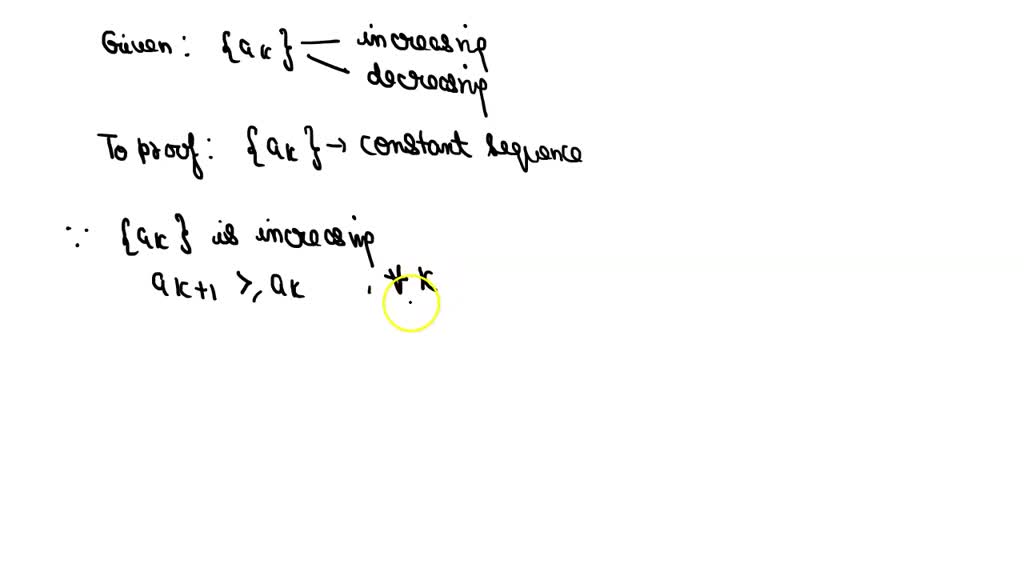 Given: {aκ} — increasing
decreasing
To proof: {aκ} → constant sequence
∵ {aκ} is increasing
aκ+1 ⩾ aκ , ∀ κ